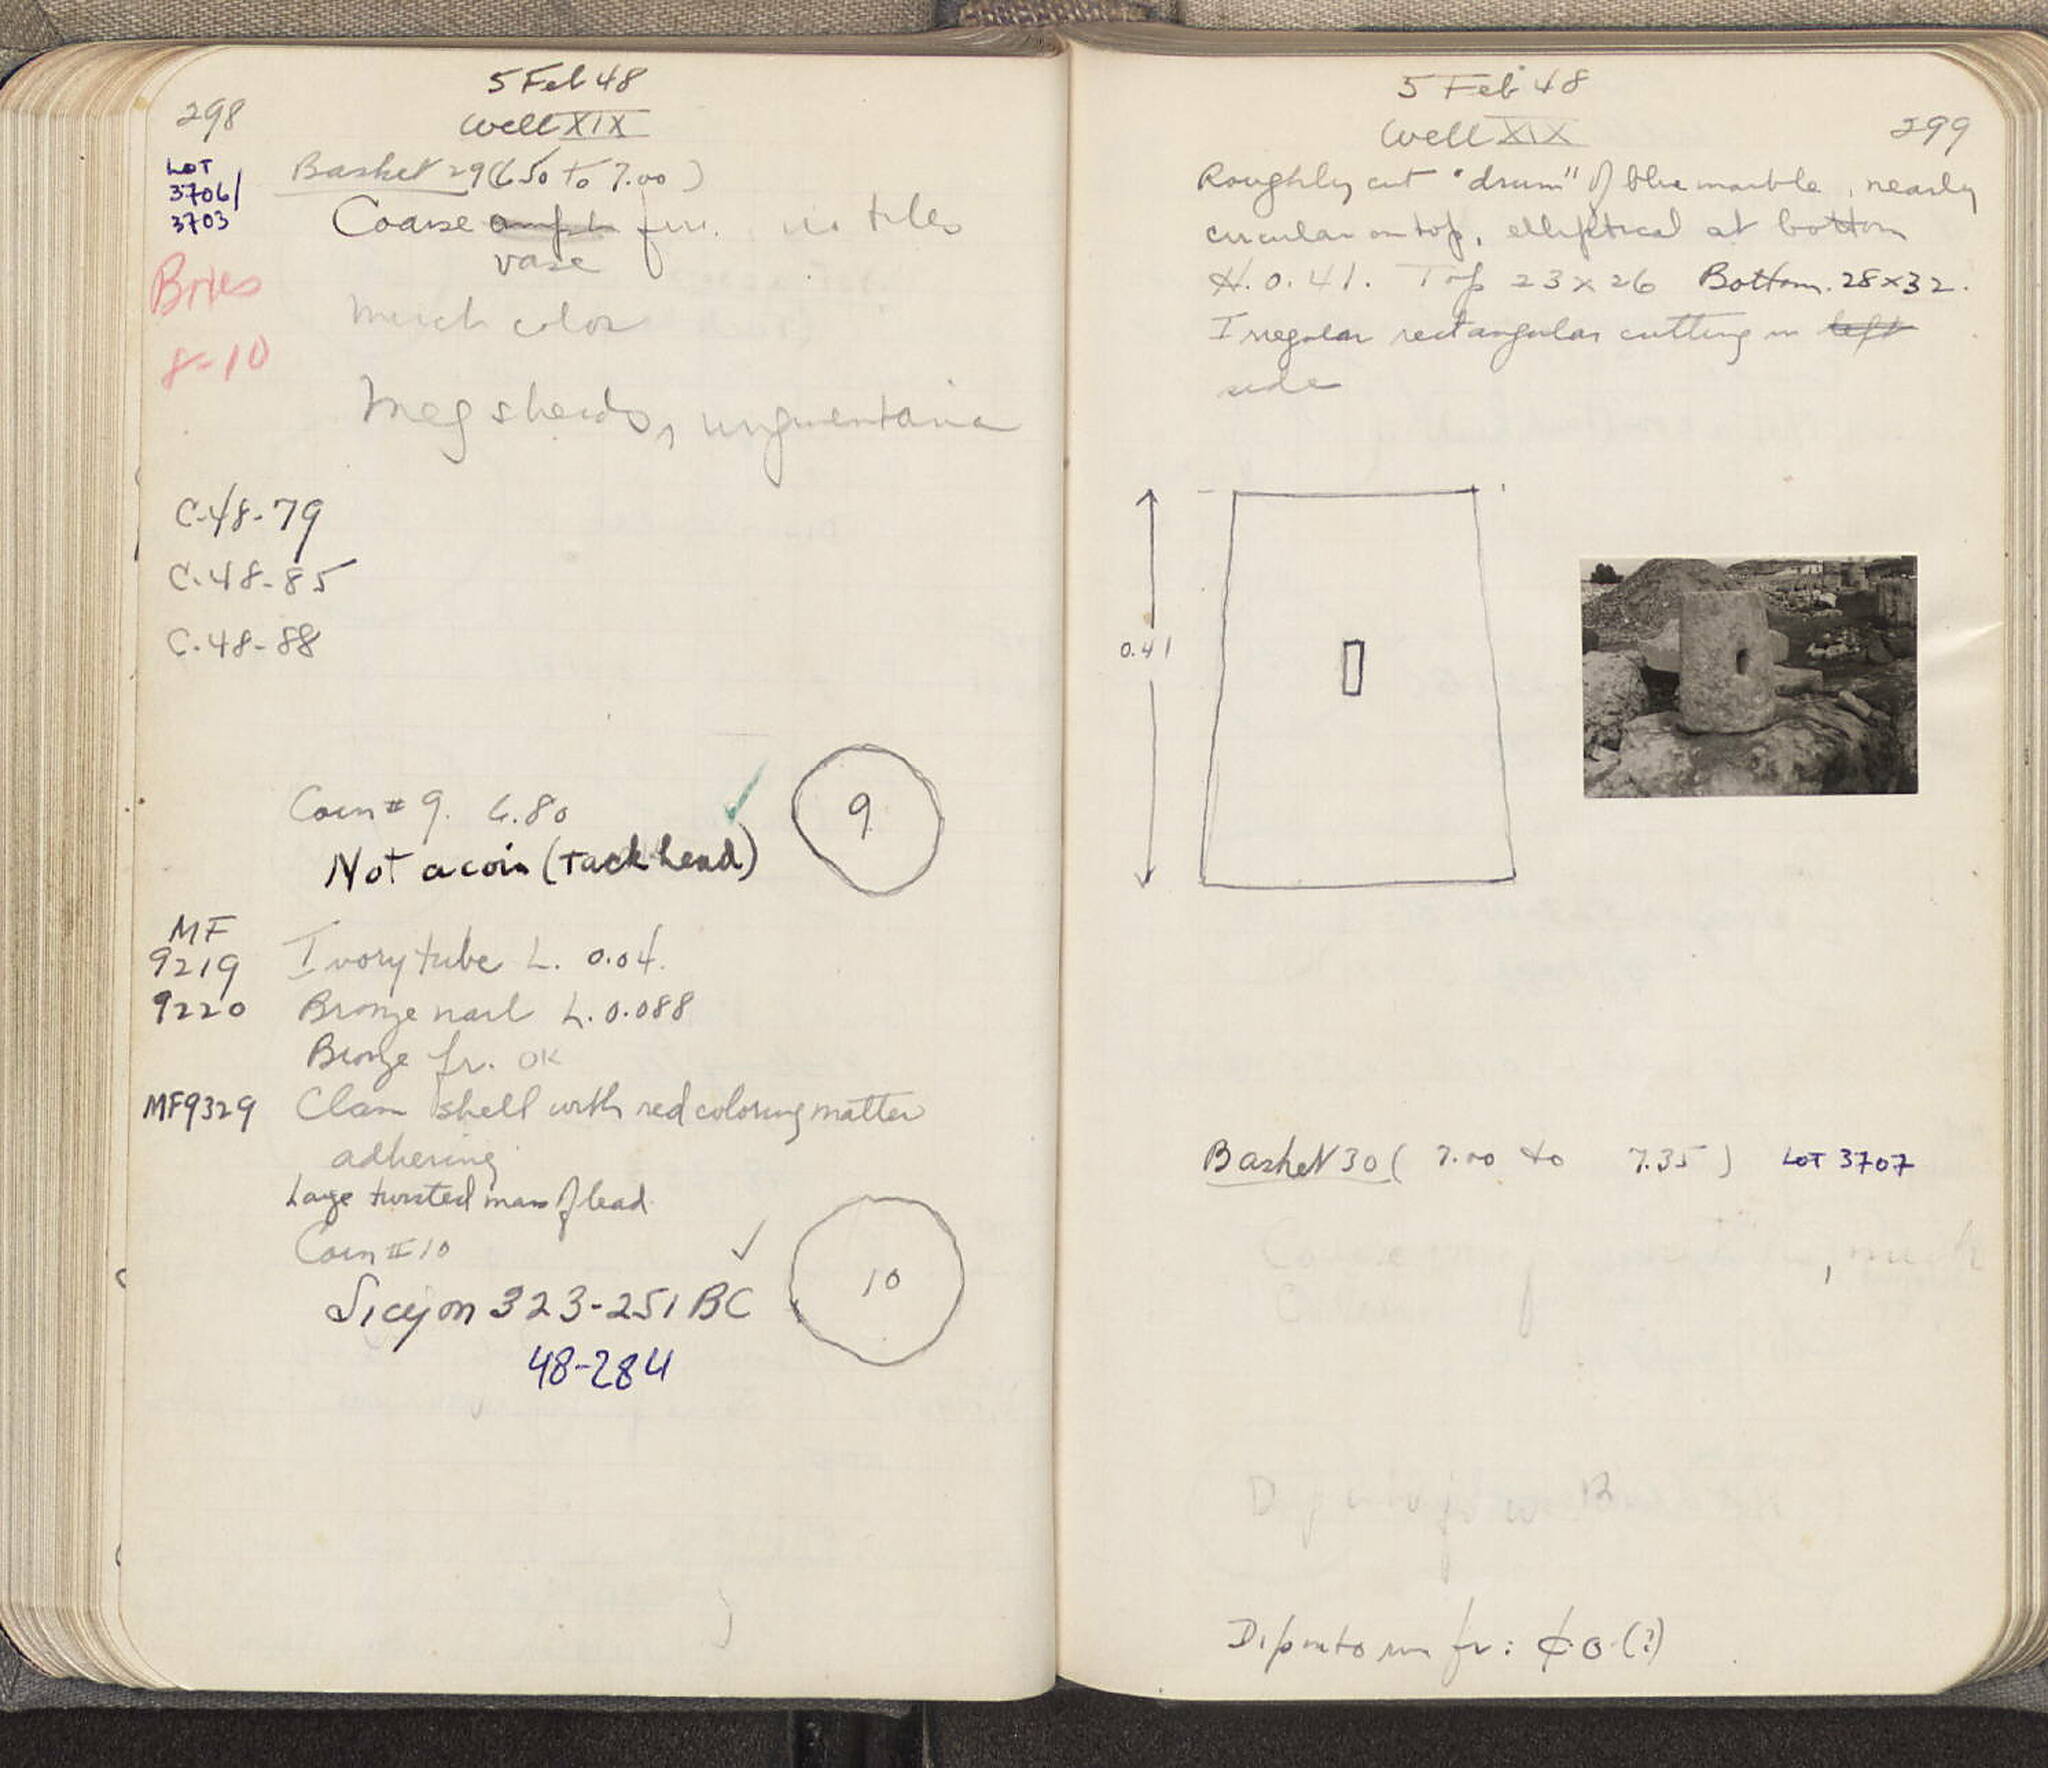 298
5 Feb 48
Well XIX
LOT
3706/
3703
Basket 29 (6.50 to 7.00)
Coarse amph frr. no tiles
vase
Much color
Meg sherds, unguentaria
Boxes
8-10
C-48-79
C-48-85
C-48-88
Coin # 9. 6.80
9
Not a coin (tack head)
MF
9219 Ivory tube L. 0.04.
9220 Bronze nail L. 0.088
Bronze fr. OK
MF9329 Clam shell with red coloring matter
adhering
Large twisted mass of lead
Coin # 10
10
Sicyon 323-251 BC
48-284
5 Feb 48
Well XIX
299
Roughly cut "drum" of blue marble, nearly
circular on top, elliptical at bottom
H. 0.41. Top 23 x 26 Bottom. 28 x 32.
Irregular rectangular cutting in left
side
0.41
Basket 30 ( 7.00 to 7.35 ) LOT 3707
Coarse much
fr: ¢ o (?)